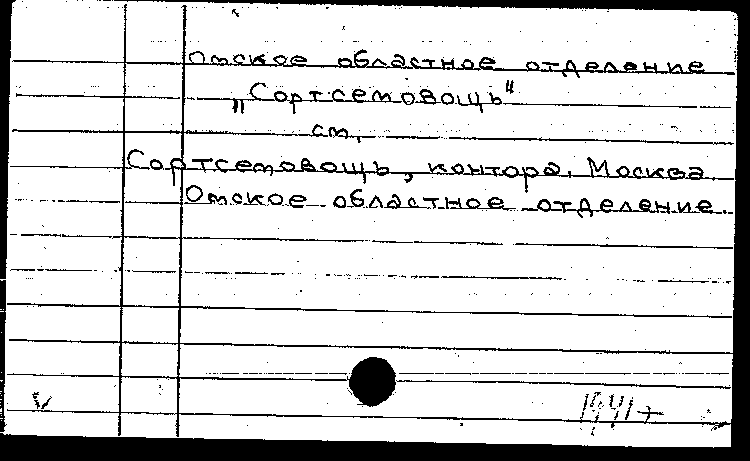 Омское областное отделение
„Сортсемовощь"
см.
Сортсемовощь, контора. Москва.
Омское областное отделение.
1941+